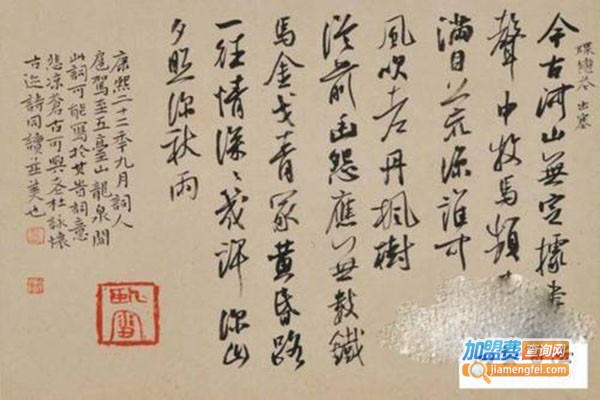 蝶戀花 出塞
今古河山無定據畫
聲中牧馬頻
滿目荒涼誰可
風吹老丹楓樹
從前幽怨應無數鐵
馬金戈青冢黃昏路
一往情深々幾許深山
夕照深秋雨
康熙二十二年九月詞人
扈駕至五臺山龍泉關
此詞可能寫於其時詞意
悲涼蒼古可與老杜詠懷
古迹詩同讀並美也
加盟费查询网
jiamengfei.com